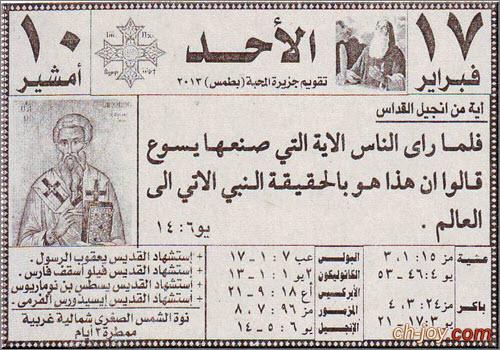 ١٧
فبراير
الأحد
تقويم جزيرة المحبة (بطمس) ٢٠١٣
١٠
أمشير
آية من انجيل القداس
فلما راى الناس الاية التي صنعها يسوع
قالوا ان هذا هو بالحقيقة النبي الاتي الى
العالم .
يو ٦ : ١٤
عشية
مز ١٥ : ١ ، ٣
يو ٤ : ٤٦ - ٥٣
باكر
مز ٢٤ : ٣ ، ٤
: ١٧ - ٢١
البولس
عب ٧ : ١ - ١٧
الكاثوليكون
٢ يو ١ : ١ - ١٣
الأبركسيس
أع ١٨ : ٩ - ٢١
المزمور
مز ٩٦ : ٧ ، ٨
الإنجيل
يو ٦ : ٥ - ١٤
+ إستشهاد القديس يعقوب الرسول .
+ إستشهاد القديس فيلو أسقف فارس .
+ إستشهاد القديس يسطس بن نوماريوس
+ إستشهاد القديس إيسيذورس الفرمى .
نوة الشمس الصغرى شمالية غربية
ممطرة ٣ أيام
ch-joy.com